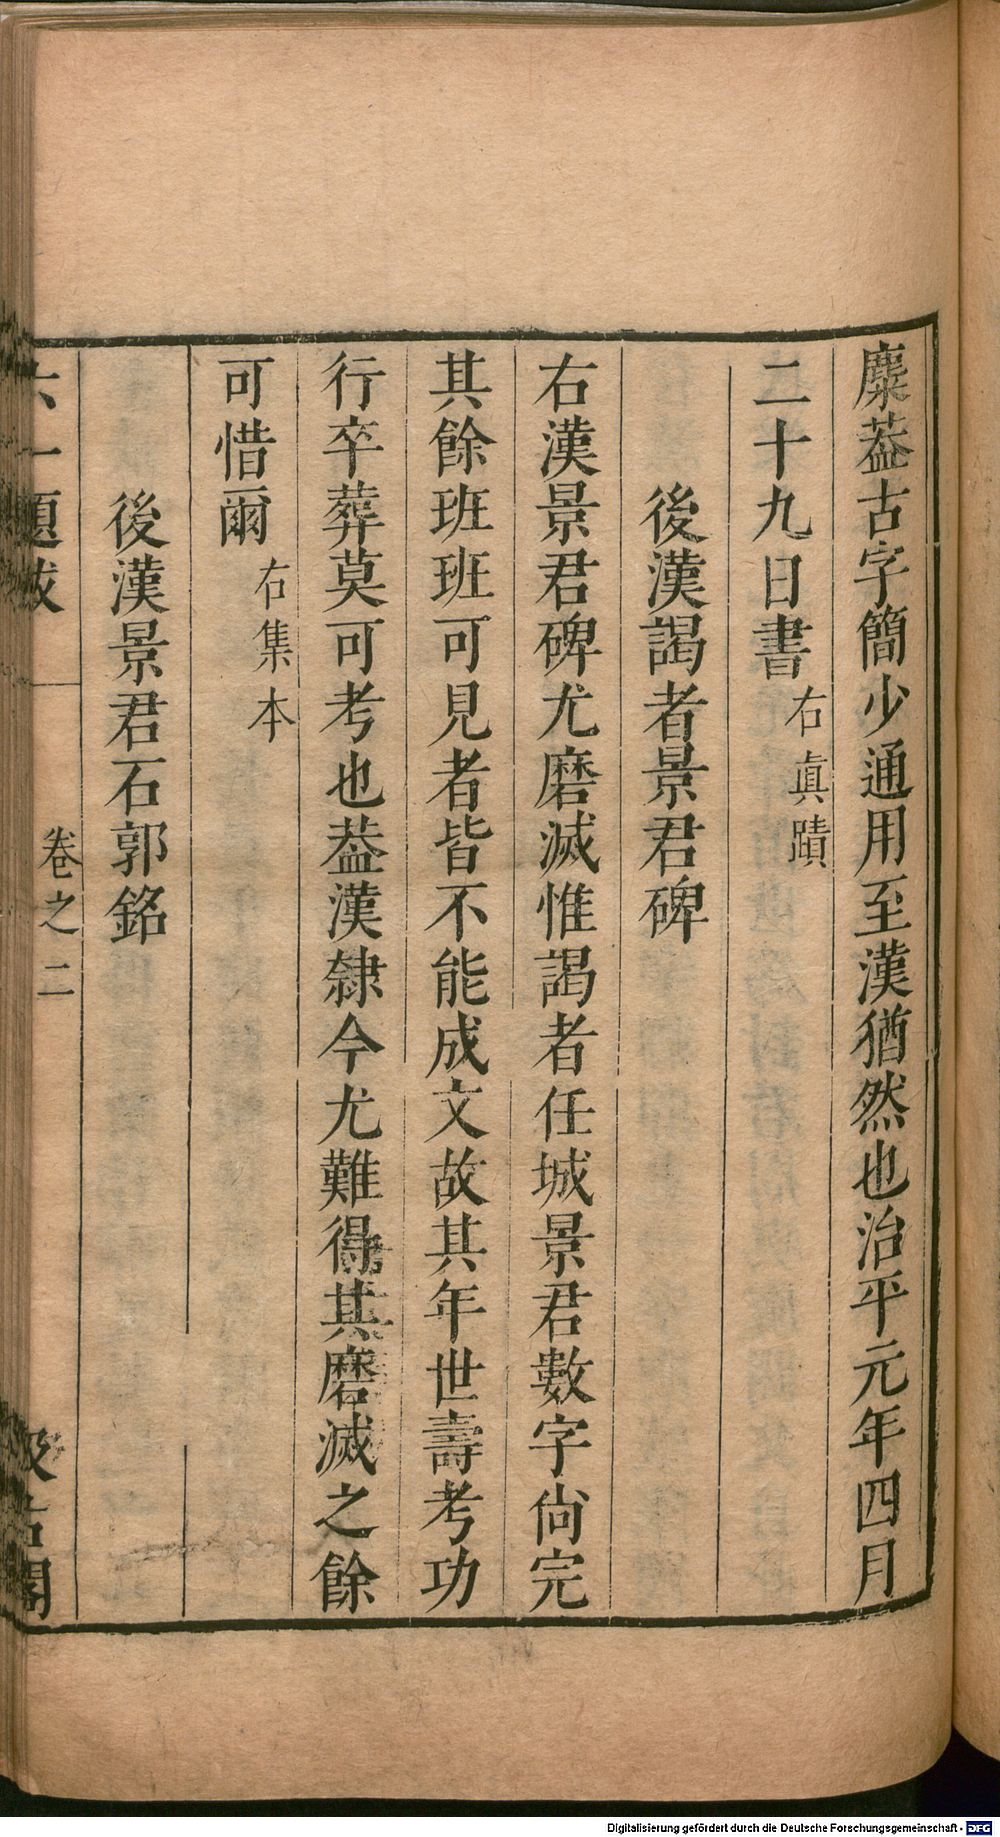 麋葢古字簡少通用至漢猶然也治平元年四月
二十九日書右眞蹟
後漢謁者景君碑
右漢景君碑尤磨滅惟謁者任城景君數字尙完
其餘班班可見者皆不能成文故其年世壽考功
行卒葬莫可考也葢漢隸今尤難得其磨滅之餘
可惜爾右集本
後漢景君石郭銘
六一題跋 卷之二 汲古閣
Digitalisierung gefördert durch die Deutsche Forschungsgemeinschaft - DFG